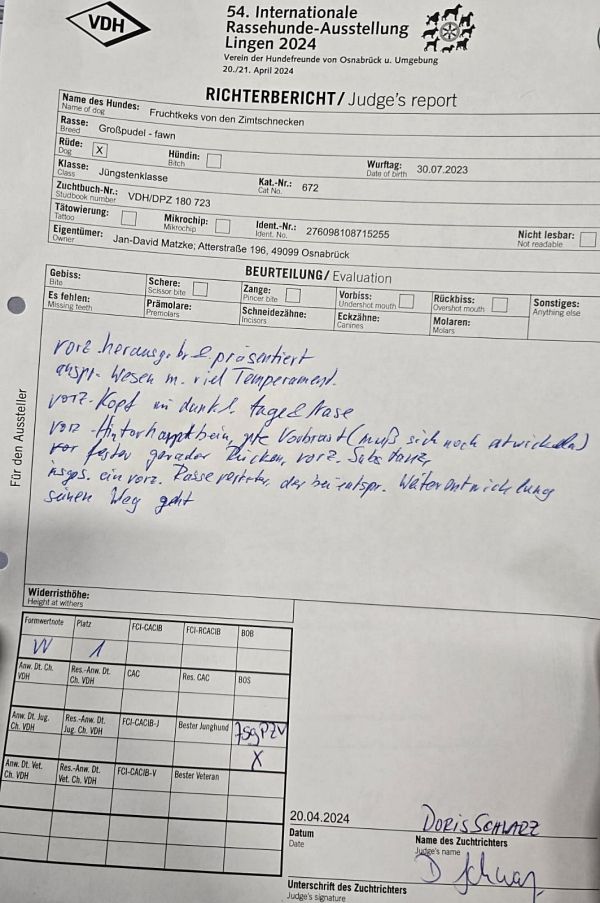 VDH
54. Internationale
Rassehunde-Ausstellung
Lingen 2024
Verein der Hundefreunde von Osnabrück u. Umgebung
20./21. April 2024
RICHTERBERICHT/ Judge's report
Name des Hundes: Fruchtkeks von den Zimtschnecken
Name of dog
Rasse: Großpudel - fawn
Breed
Rüde: X Hündin: Wurftag: 30.07.2023
Dog Bitch Date of birth
Klasse: Jüngstenklasse Kat.-Nr.: 672
Class Cat No.
Zuchtbuch-Nr.: VDH/DPZ 180 723
Studbook number
Tätowierung: Mikrochip: Ident.-Nr.: 276098108715255 Nicht lesbar:
Tattoo Mikrochip Ident. No. Not readable
Eigentümer: Jan-David Matzke; Atterstraße 196, 49099 Osnabrück
Owner
BEURTEILUNG/ Evaluation
Gebiss: Schere: Zange: Vorbiss: Rückbiss: Sonstiges:
Bite Scissor bite Pincer bite Undershot mouth Overshot mouth Anything else
Es fehlen: Prämolare: Schneidezähne: Eckzähne: Molaren:
Missing teeth Premolars Incisors Canines Molars
Für den Aussteller
vorz. herausgebr. & präsentiert
anspr. Wesen m. viel Temperament.
vorz. Kopf m dunkl. Auge & Nase
vorz. Hinterhauptbein, gute Vorbrust (muß sich noch entwickeln)
fester gerader Rücken, vorz. Substanz,
insges. ein vorz. Rassevertreter, der bei entspr. Weiterentwicklung
seinen Weg geht
Widerristhöhe:
Height at withers
Formwertnote Platz FCI-CACIB FCI-RCACIB BOB
VV 1
Anw. Dt. Ch. VDH Res.-Anw. Dt. Ch. VDH CAC Res. CAC BOS
Anw. Dt. Jug. Ch. VDH Res.-Anw. Dt. Jug. Ch. VDH FCI-CACIB-J Bester Junghund JsgPZV
X
Anw. Dt. Vet. Ch. VDH Res.-Anw. Dt. Vet. Ch. VDH FCI-CACIB-V Bester Veteran
20.04.2024 DORIS SCHWARZ
Datum Name des Zuchtrichters
Date Judge's name
D Schwarz
Unterschrift des Zuchtrichters
Judge's signature